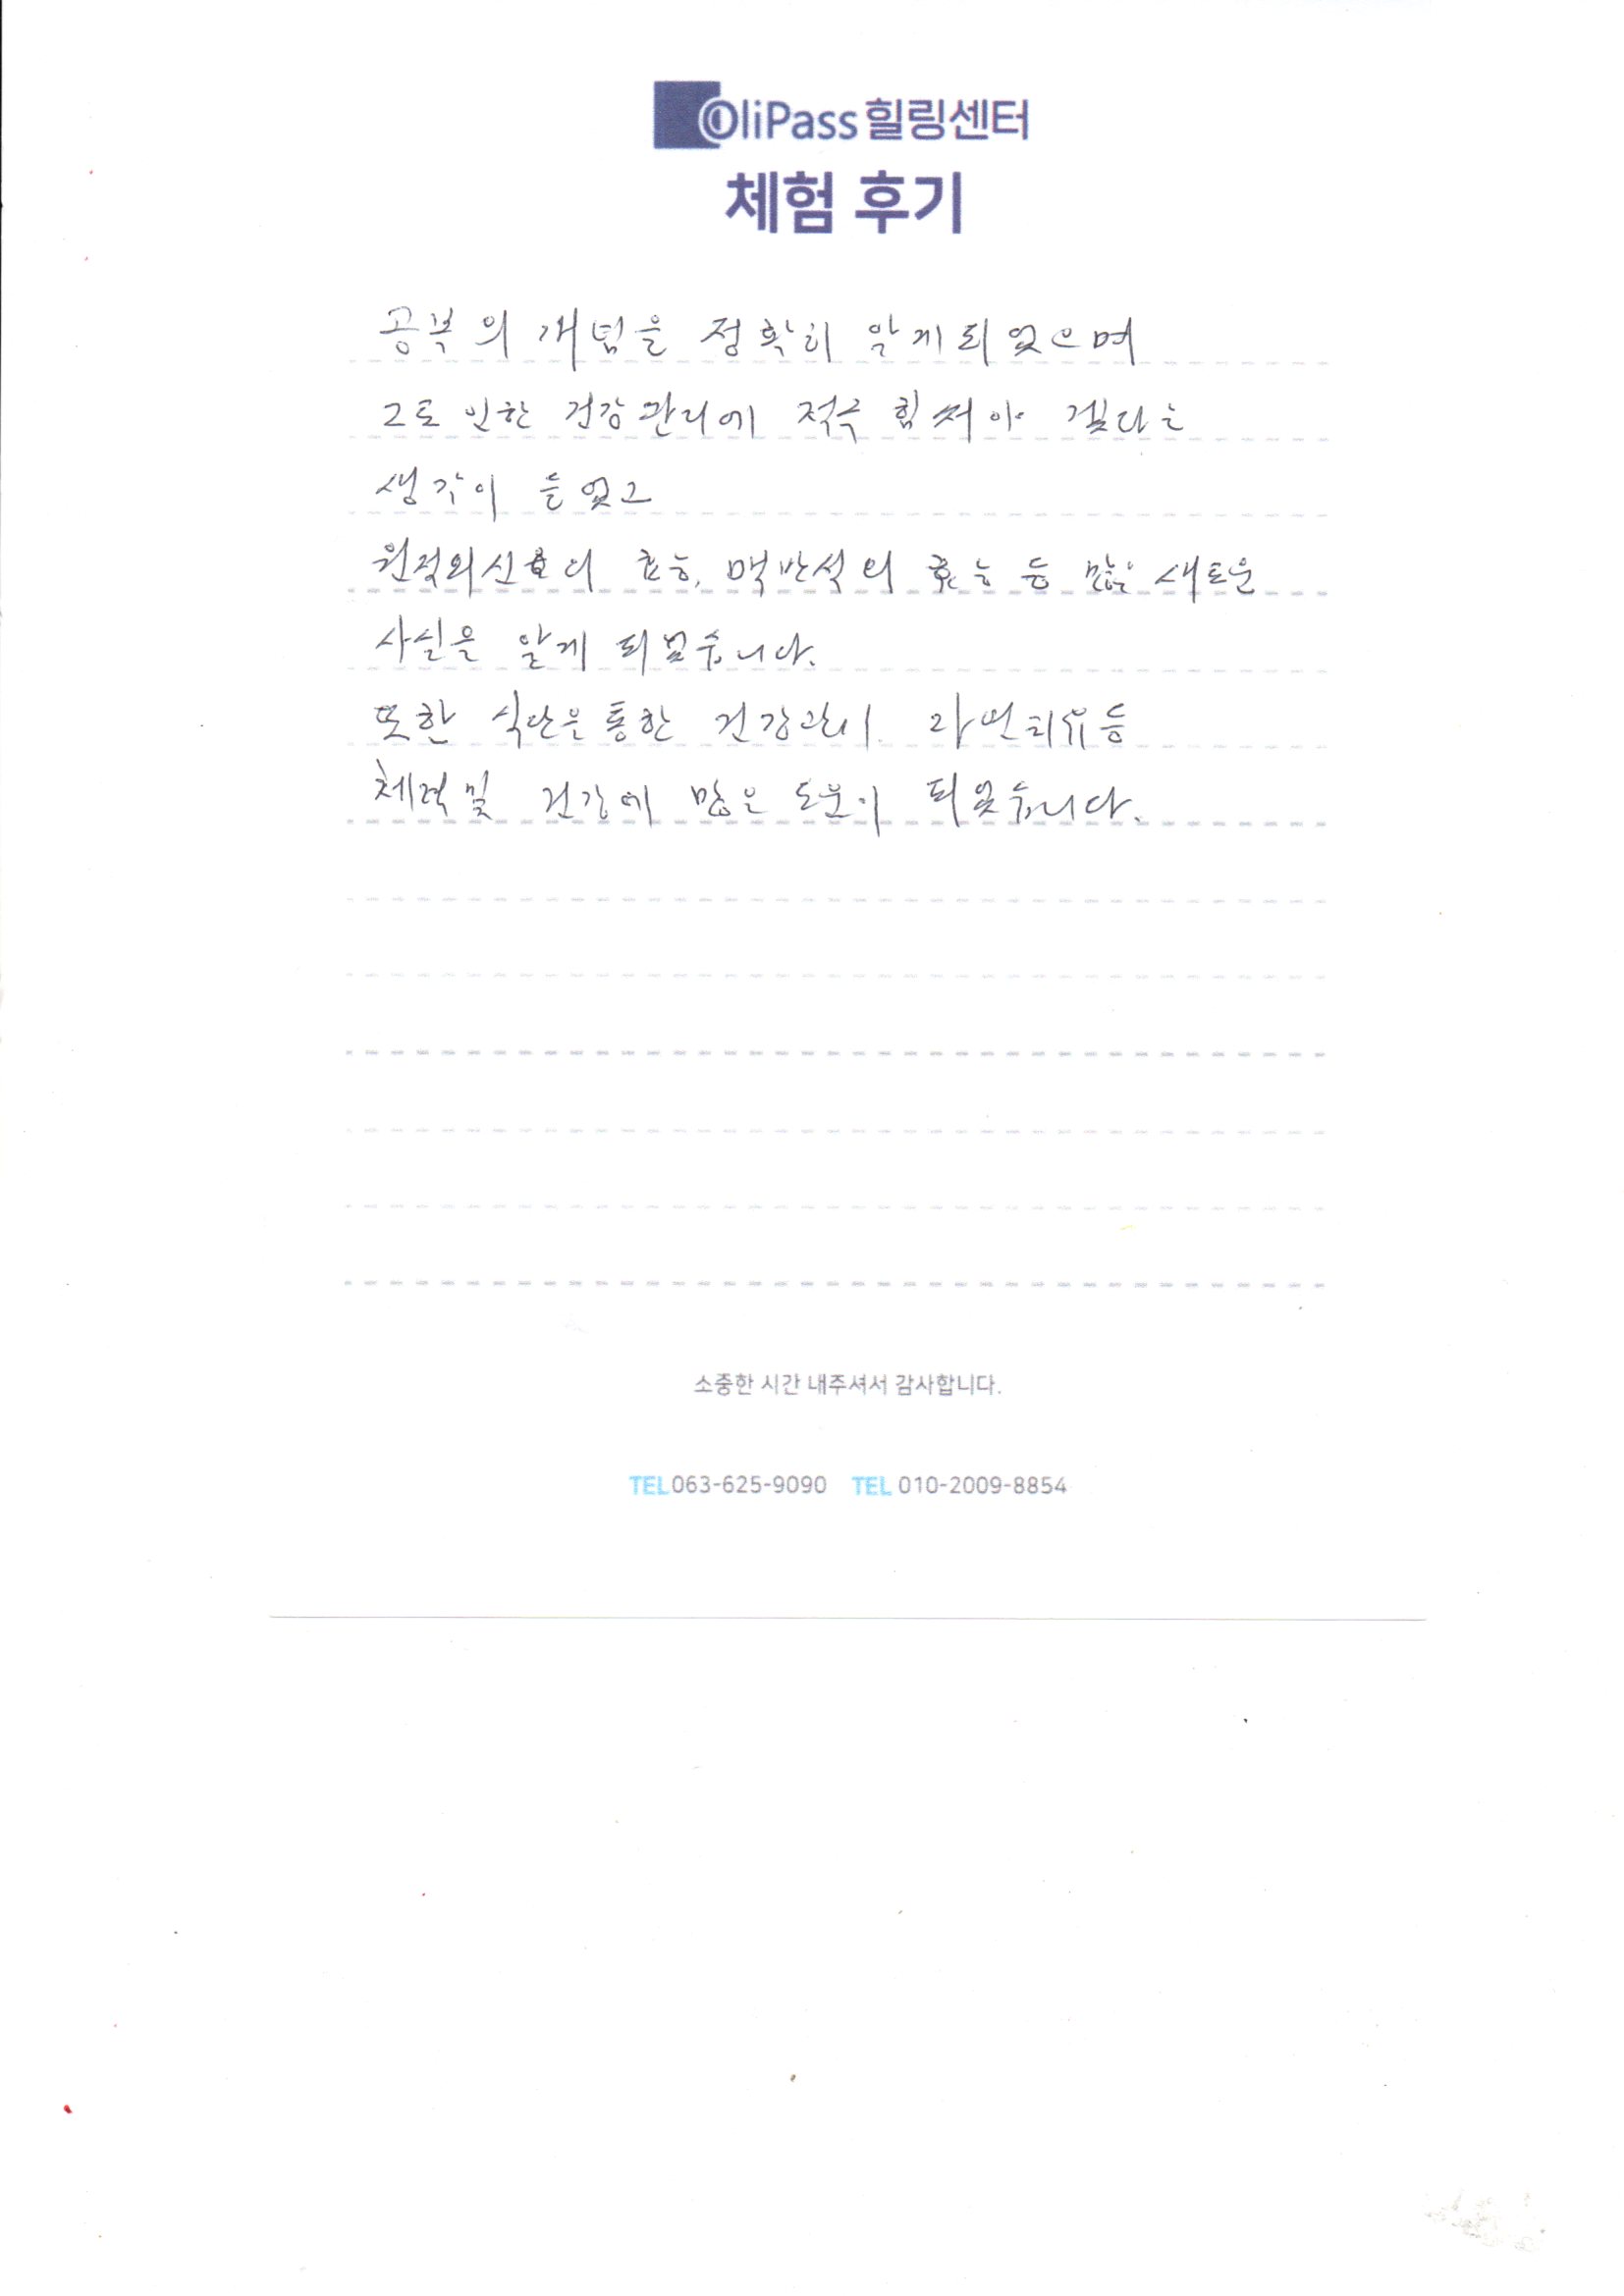 OliPass 힐링센터
체험 후기
공복의 개념을 정확히 알게되었으며
그로 인한 건강관리에 적극 힘써야 겠다는
생각이 들었고
원적외선의 효능, 맥반석의 효능 등 많은 새로운
사실을 알게 되었습니다.
또한 식단을 통한 건강관리. 자연치유등
체력및 건강에 많은 도움이 되었습니다.
소중한 시간 내주셔서 감사합니다.
TEL 063-625-9090 TEL 010-2009-8854